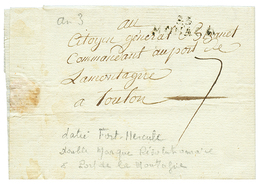 an 3
au
Citoyen général
Commandant au port de
Lamontagne
a Toulon
7
daté Fort-Hercule
double Marque Révolutionnaire
& Port de la Montagne